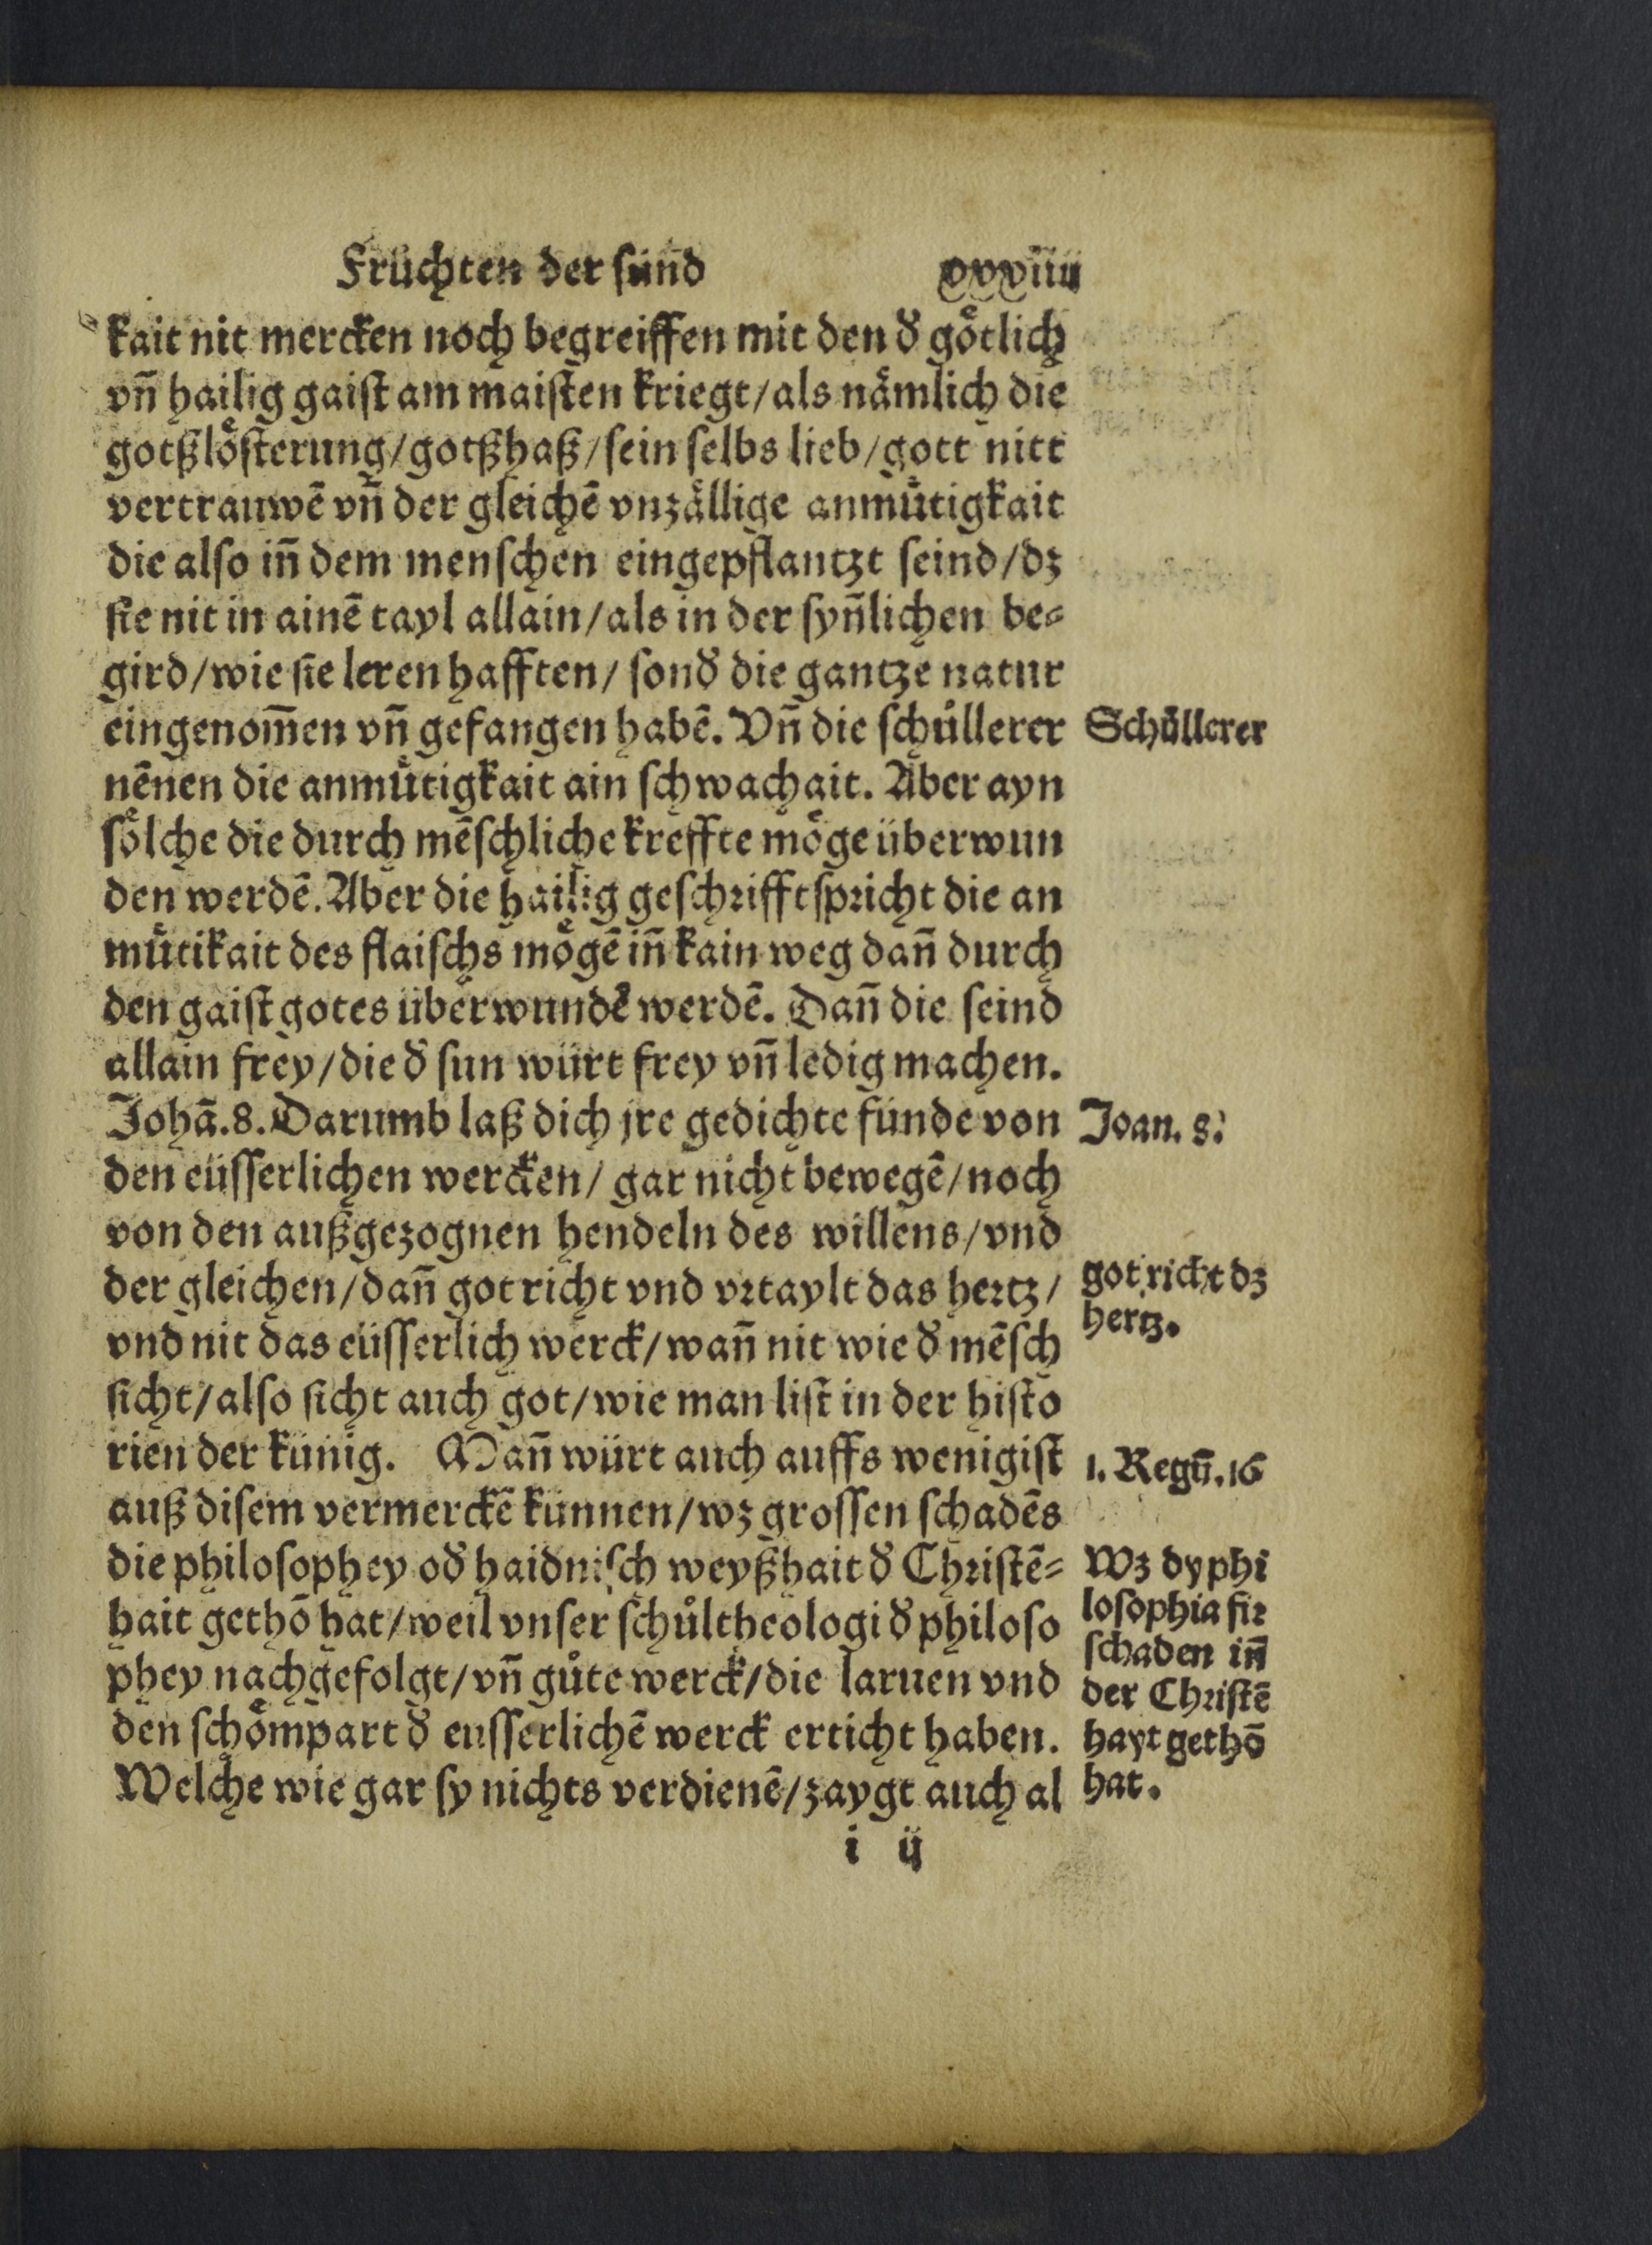 Früchten der sünd xxxiiii
kait nit mercken noch begreiffen mit den đ goͤtlich
vñ hailig gaist am maisten kriegt/als naͤmlich die
gotßloͤsterung/gotßhaß/sein selbs lieb/gott nitt
vertrauwẽ vñ der gleichẽ vnzaͤllige anmuͤtigkait
die also iñ dem menschen eingepflantzt seind/dz
sie nit in ainẽ tayl allain/als in der syñlichen be⸗
gird/wie sie leren hafften/ sonđ die gantze natur
eingenom̃en vñ gefangen habẽ. Vñ die schůllerer
Schůllerer
nẽnen die anmuͤtigkait ain schwachait. Aber ayn
soͤlche die durch mẽschliche kreffte moͤge überwun
den werdẽ. Aber die hailig geschrifft spricht die an
muͤtikait des flaischs moͤgẽ iñ kain weg dañ durch
den gaist gotes überwundẽ werdẽ. Dañ die seind
allain frey/die đ sun würt frey vñ ledig machen.
Johã.8. Darumb laß dich jre gedichte fünde von
Joan. 8.
den eüsserlichen wercken/ gar nicht bewegẽ/noch
von den außgezognen hendeln des willens/vnd
der gleichen/dañ got richt vnd vrtaylt das hertz/
got richt dz
hertz.
vnd nit das eüsserlich werck/wañ nit wie đ mẽsch
sicht/also sicht auch got/wie man list in der histo
rien der künig. Mañ würt auch auffs wenigist
1. Regũ.16
auß disem vermerckẽ künnen/wz grossen schadẽs
die philosophey ođ haidnisch weyßhait đ Christẽ⸗
hait gethõ hat/weil vnser schůltheologi đ philoso
phey nachgefolgt/vñ gůte werck/die laruen vnd
den schoͤmpart đ eusserlichẽ werck erticht haben.
Welche wie gar sy nichts verdienẽ/zaygt auch al
Wz dy phi
losophia fir
schaden iñ
der Christẽ
hayt gethõ
hat.
i ij